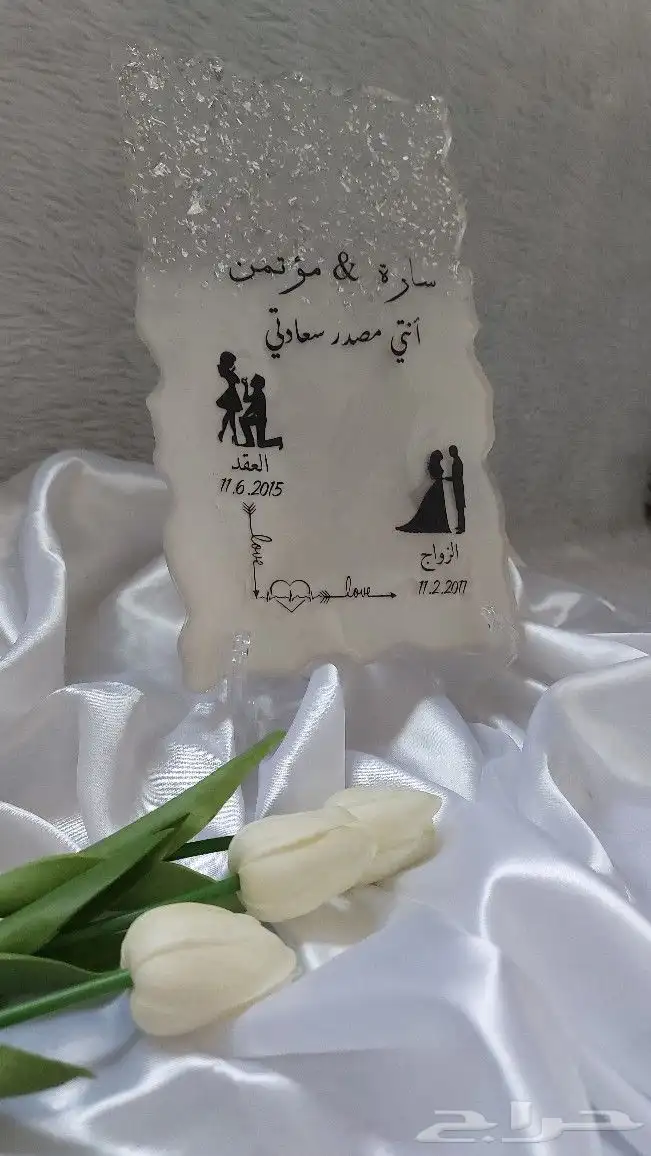 سارة & مؤتمن
أنتي مصدر سعادتي
العقد
11.6.2015
الزواج
11.2.2017
love
love
حراج